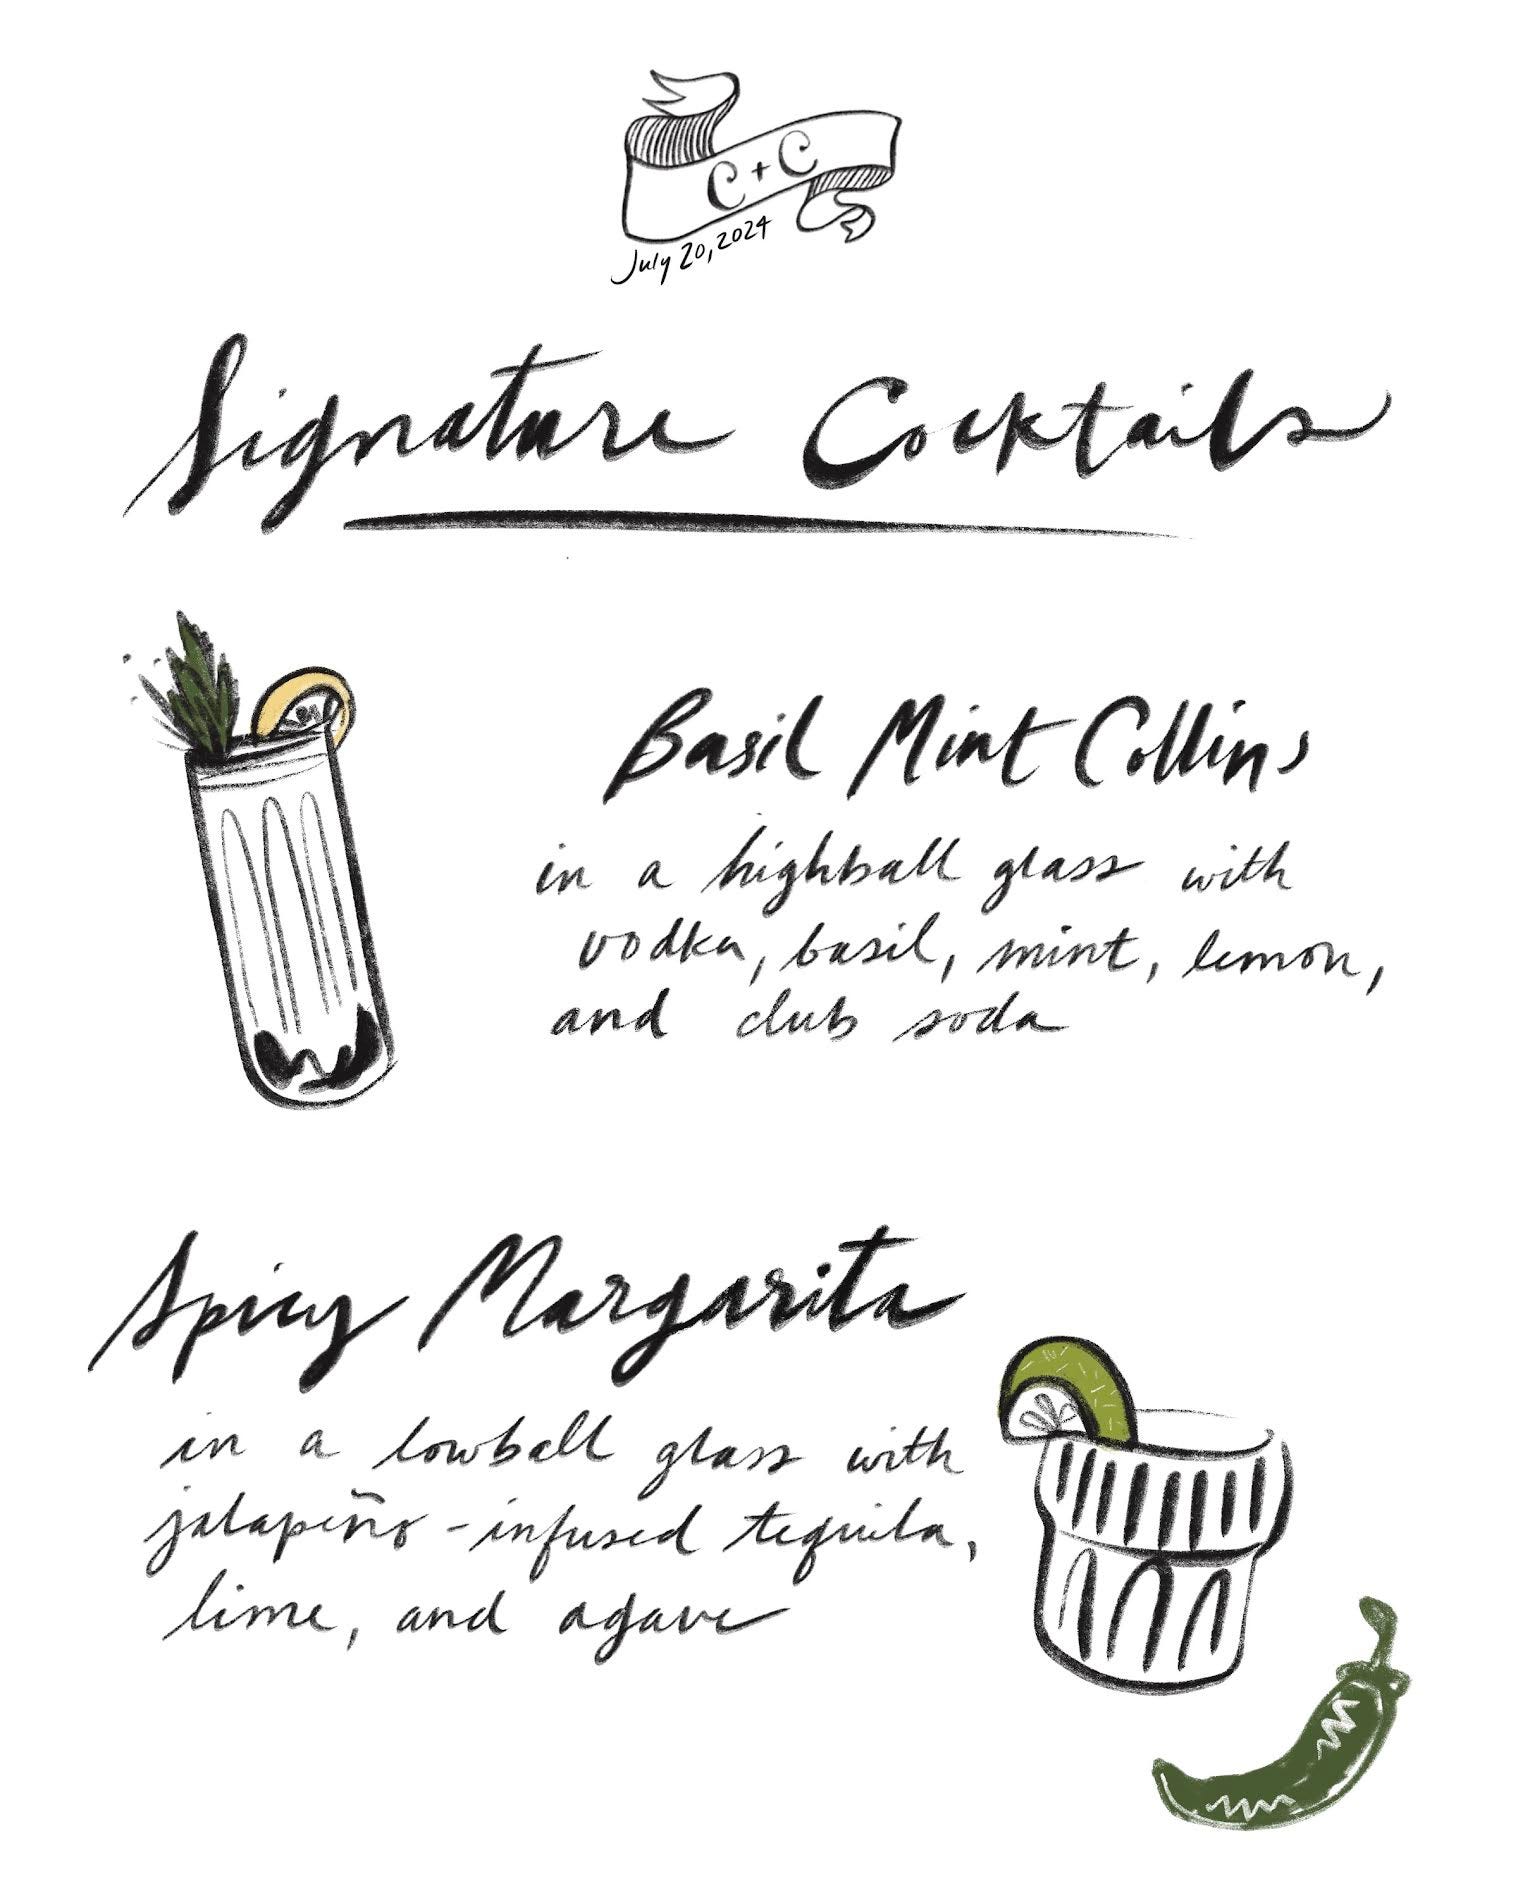 C + C
July 20, 2024
Signature Cocktails
Basil Mint Collins
in a highball glass with
vodka, basil, mint, lemon,
and club soda
Spicy Margarita
in a lowball glass with
jalapeño-infused tequila,
lime, and agave